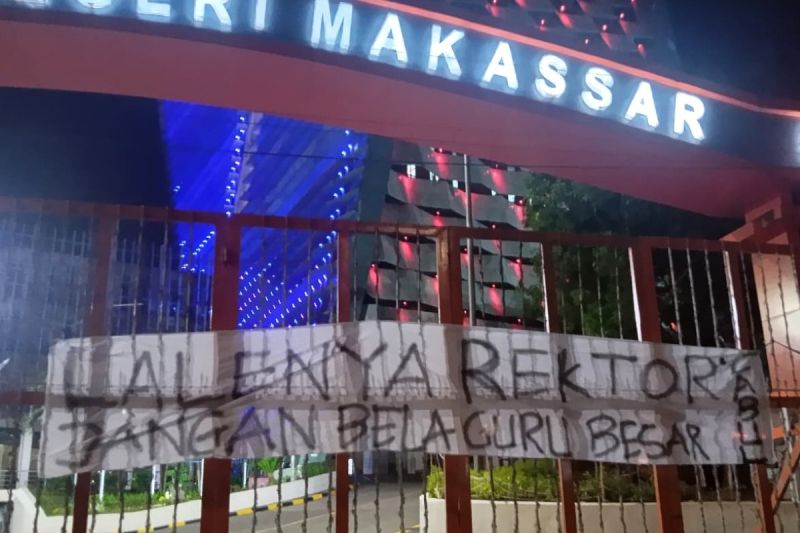 EGERI MAKASSAR
LALENYA REKTOR"
DANGAN BELA GURU BESAR
CABUL